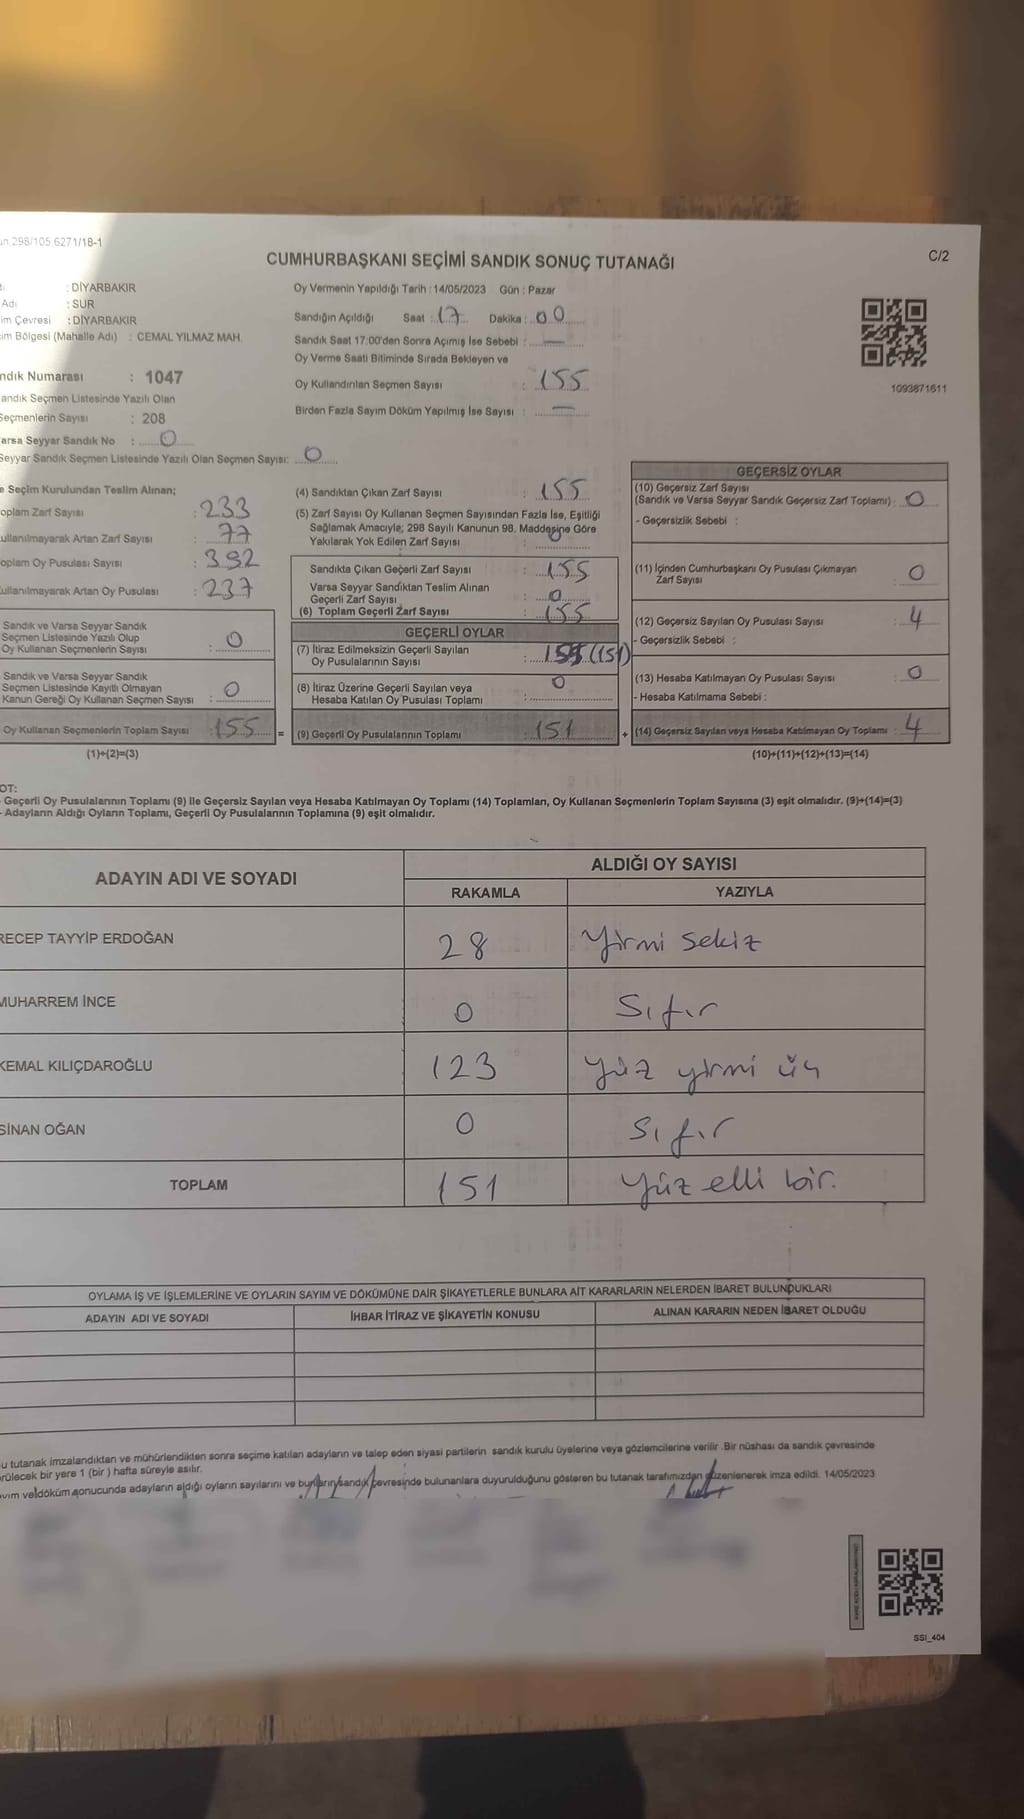 298/105.6271/18-1
C/2
CUMHURBAŞKANI SEÇİMİ SANDIK SONUÇ TUTANAĞI
: DİYARBAKIR
Adı : SUR
im Çevresi : DİYARBAKIR
im Bölgesi (Mahalle Adı) : CEMAL YILMAZ MAH.
ndık Numarası : 1047
andık Seçmen Listesinde Yazılı Olan
Seçmenlerin Sayısı : 208
arsa Seyyar Sandık No : 0
Seyyar Sandık Seçmen Listesinde Yazılı Olan Seçmen Sayısı: 0
Oy Vermenin Yapıldığı Tarih : 14/05/2023 Gün : Pazar
Sandığın Açıldığı Saat : 17 Dakika : 00
Sandık Saat 17:00'den Sonra Açımış İse Sebebi : —
Oy Verme Saati Bitiminde Sırada Bekleyen ve
Oy Kullandırılan Seçmen Sayısı : 155
Birden Fazla Sayım Döküm Yapılmış İse Sayısı : —
1093871611
e Seçim Kurulundan Teslim Alınan;
oplam Zarf Sayısı : 233
ullanılmayarak Artan Zarf Sayısı : 77
oplam Oy Pusulası Sayısı : 392
ullanılmayarak Artan Oy Pusulası : 237
Sandık ve Varsa Seyyar Sandık
Seçmen Listesinde Yazılı Olup
Oy Kullanan Seçmenlerin Sayısı : 0
Sandık ve Varsa Seyyar Sandık
Seçmen Listesinde Kayıtlı Olmayan
Kanun Gereği Oy Kullanan Seçmen Sayısı : 0
Oy Kullanan Seçmenlerin Toplam Sayısı : 155 =
(1)+(2)=(3)
(4) Sandıktan Çıkan Zarf Sayısı : 155
(5) Zarf Sayısı Oy Kullanan Seçmen Sayısından Fazla İse, Eşitliği
Sağlamak Amacıyle; 298 Sayılı Kanunun 98. Maddesine Göre
Yakılarak Yok Edilen Zarf Sayısı : 0
Sandıkta Çıkan Geçerli Zarf Sayısı : 155
Varsa Seyyar Sandıktan Teslim Alınan
Geçerli Zarf Sayısı : 0
(6) Toplam Geçerli Zarf Sayısı : 155
GEÇERLİ OYLAR
(7) İtiraz Edilmeksizin Geçerli Sayılan
Oy Pusulalarının Sayısı : 155 (151)
(8) İtiraz Üzerine Geçerli Sayılan veya
Hesaba Katılan Oy Pusulası Toplamı : 0
(9) Geçerli Oy Pusulalarının Toplamı : 151 +
GEÇERSİZ OYLAR
(10) Geçersiz Zarf Sayısı
(Sandık ve Varsa Seyyar Sandık Geçersiz Zarf Toplamı) : 0
- Geçersizlik Sebebi :
(11) İçinden Cumhurbaşkanı Oy Pusulası Çıkmayan
Zarf Sayısı : 0
(12) Geçersiz Sayılan Oy Pusulası Sayısı : 4
- Geçersizlik Sebebi :
(13) Hesaba Katılmayan Oy Pusulası Sayısı : 0
- Hesaba Katılmama Sebebi :
(14) Geçersiz Sayılan veya Hesaba Katılmayan Oy Toplamı : 4
(10)+(11)+(12)+(13)=(14)
OT:
- Geçerli Oy Pusulalarının Toplamı (9) ile Geçersiz Sayılan veya Hesaba Katılmayan Oy Toplamı (14) Toplamları, Oy Kullanan Seçmenlerin Toplam Sayısına (3) eşit olmalıdır. (9)+(14)=(3)
- Adayların Aldığı Oyların Toplamı, Geçerli Oy Pusulalarının Toplamına (9) eşit olmalıdır.
ADAYIN ADI VE SOYADI
ALDIĞI OY SAYISI
RAKAMLA YAZIYLA
RECEP TAYYİP ERDOĞAN 28 Yirmi sekiz
MUHARREM İNCE 0 Sıfır
KEMAL KILIÇDAROĞLU 123 Yüz yirmi üç
SİNAN OĞAN 0 Sıfır
TOPLAM 151 Yüz elli bir.
OYLAMA İŞ VE İŞLEMLERİNE VE OYLARIN SAYIM VE DÖKÜMÜNE DAİR ŞİKAYETLERLE BUNLARA AİT KARARLARIN NELERDEN İBARET BULUNDUKLARI
ADAYIN ADI VE SOYADI İHBAR İTİRAZ VE ŞİKAYETİN KONUSU ALINAN KARARIN NEDEN İBARET OLDUĞU
u tutanak imzalandıktan ve mühürlendikten sonra seçime katılan adayların ve talep eden siyasi partilerin sandık kurulu üyelerine veya gözlemcilerine verilir .Bir nüshası da sandık çevresinde
rülecek bir yere 1 (bir ) hafta süreyle asılır.
yım ve döküm sonucunda adayların aldığı oyların sayılarını ve bunların sandık çevresinde bulunanlara duyurulduğunu gösteren bu tutanak tarafımızdan düzenlenerek imza edildi. 14/05/2023
SSI_404